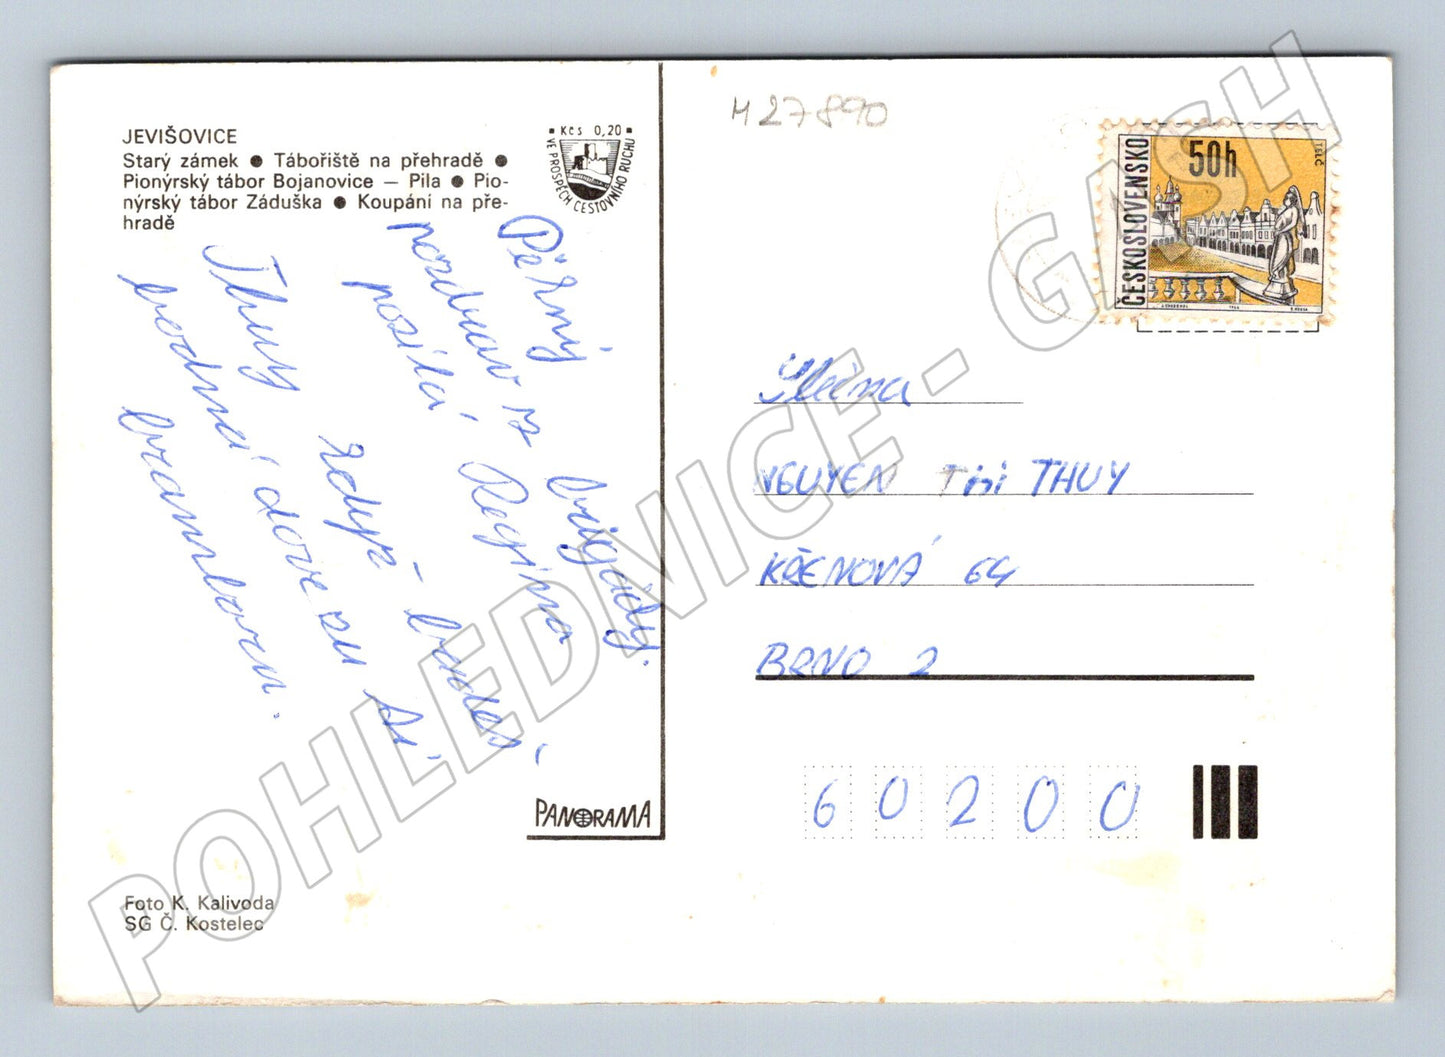 JEVIŠOVICE
Starý zámek ● Tábořiště na přehradě ●
Pionýrský tábor Bojanovice — Pila ● Pio-
nýrský tábor Záduška ● Koupání na pře-
hradě
Kčs 0,20
VE PROSPĚCH CESTOVNÍHO RUCHU
Pěkný
pozdrav z brigády.
posílá Regina
Thuy když budeš
hodná dovezu ti
bramboru.
PANORAMA
Foto K. Kalivoda
SG Č. Kostelec
M 27890
ČESKOSLOVENSKO
50h
TELČ
Slečna
NGUYEN Thi THUY
KŘENOVÁ 64
BRNO 2
60200
POHLEDNICE - GASH